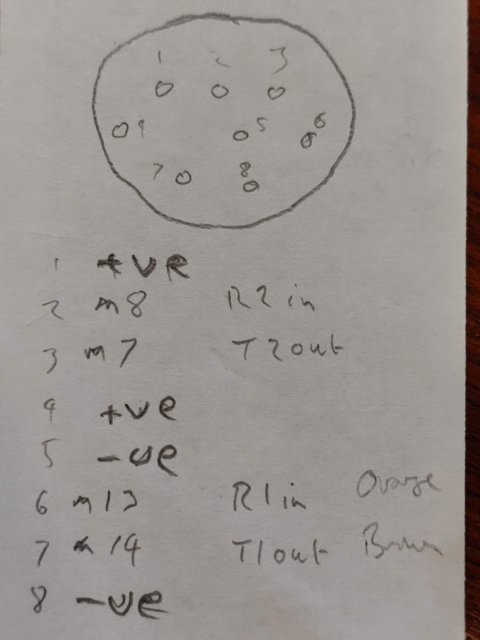 1 2 3
4 5 6
7 8
1 +ve
2 m8 R2in
3 m7 T2out
4 +ve
5 -ve
6 m13 R1in Orange
7 m14 T1out Brown
8 -ve